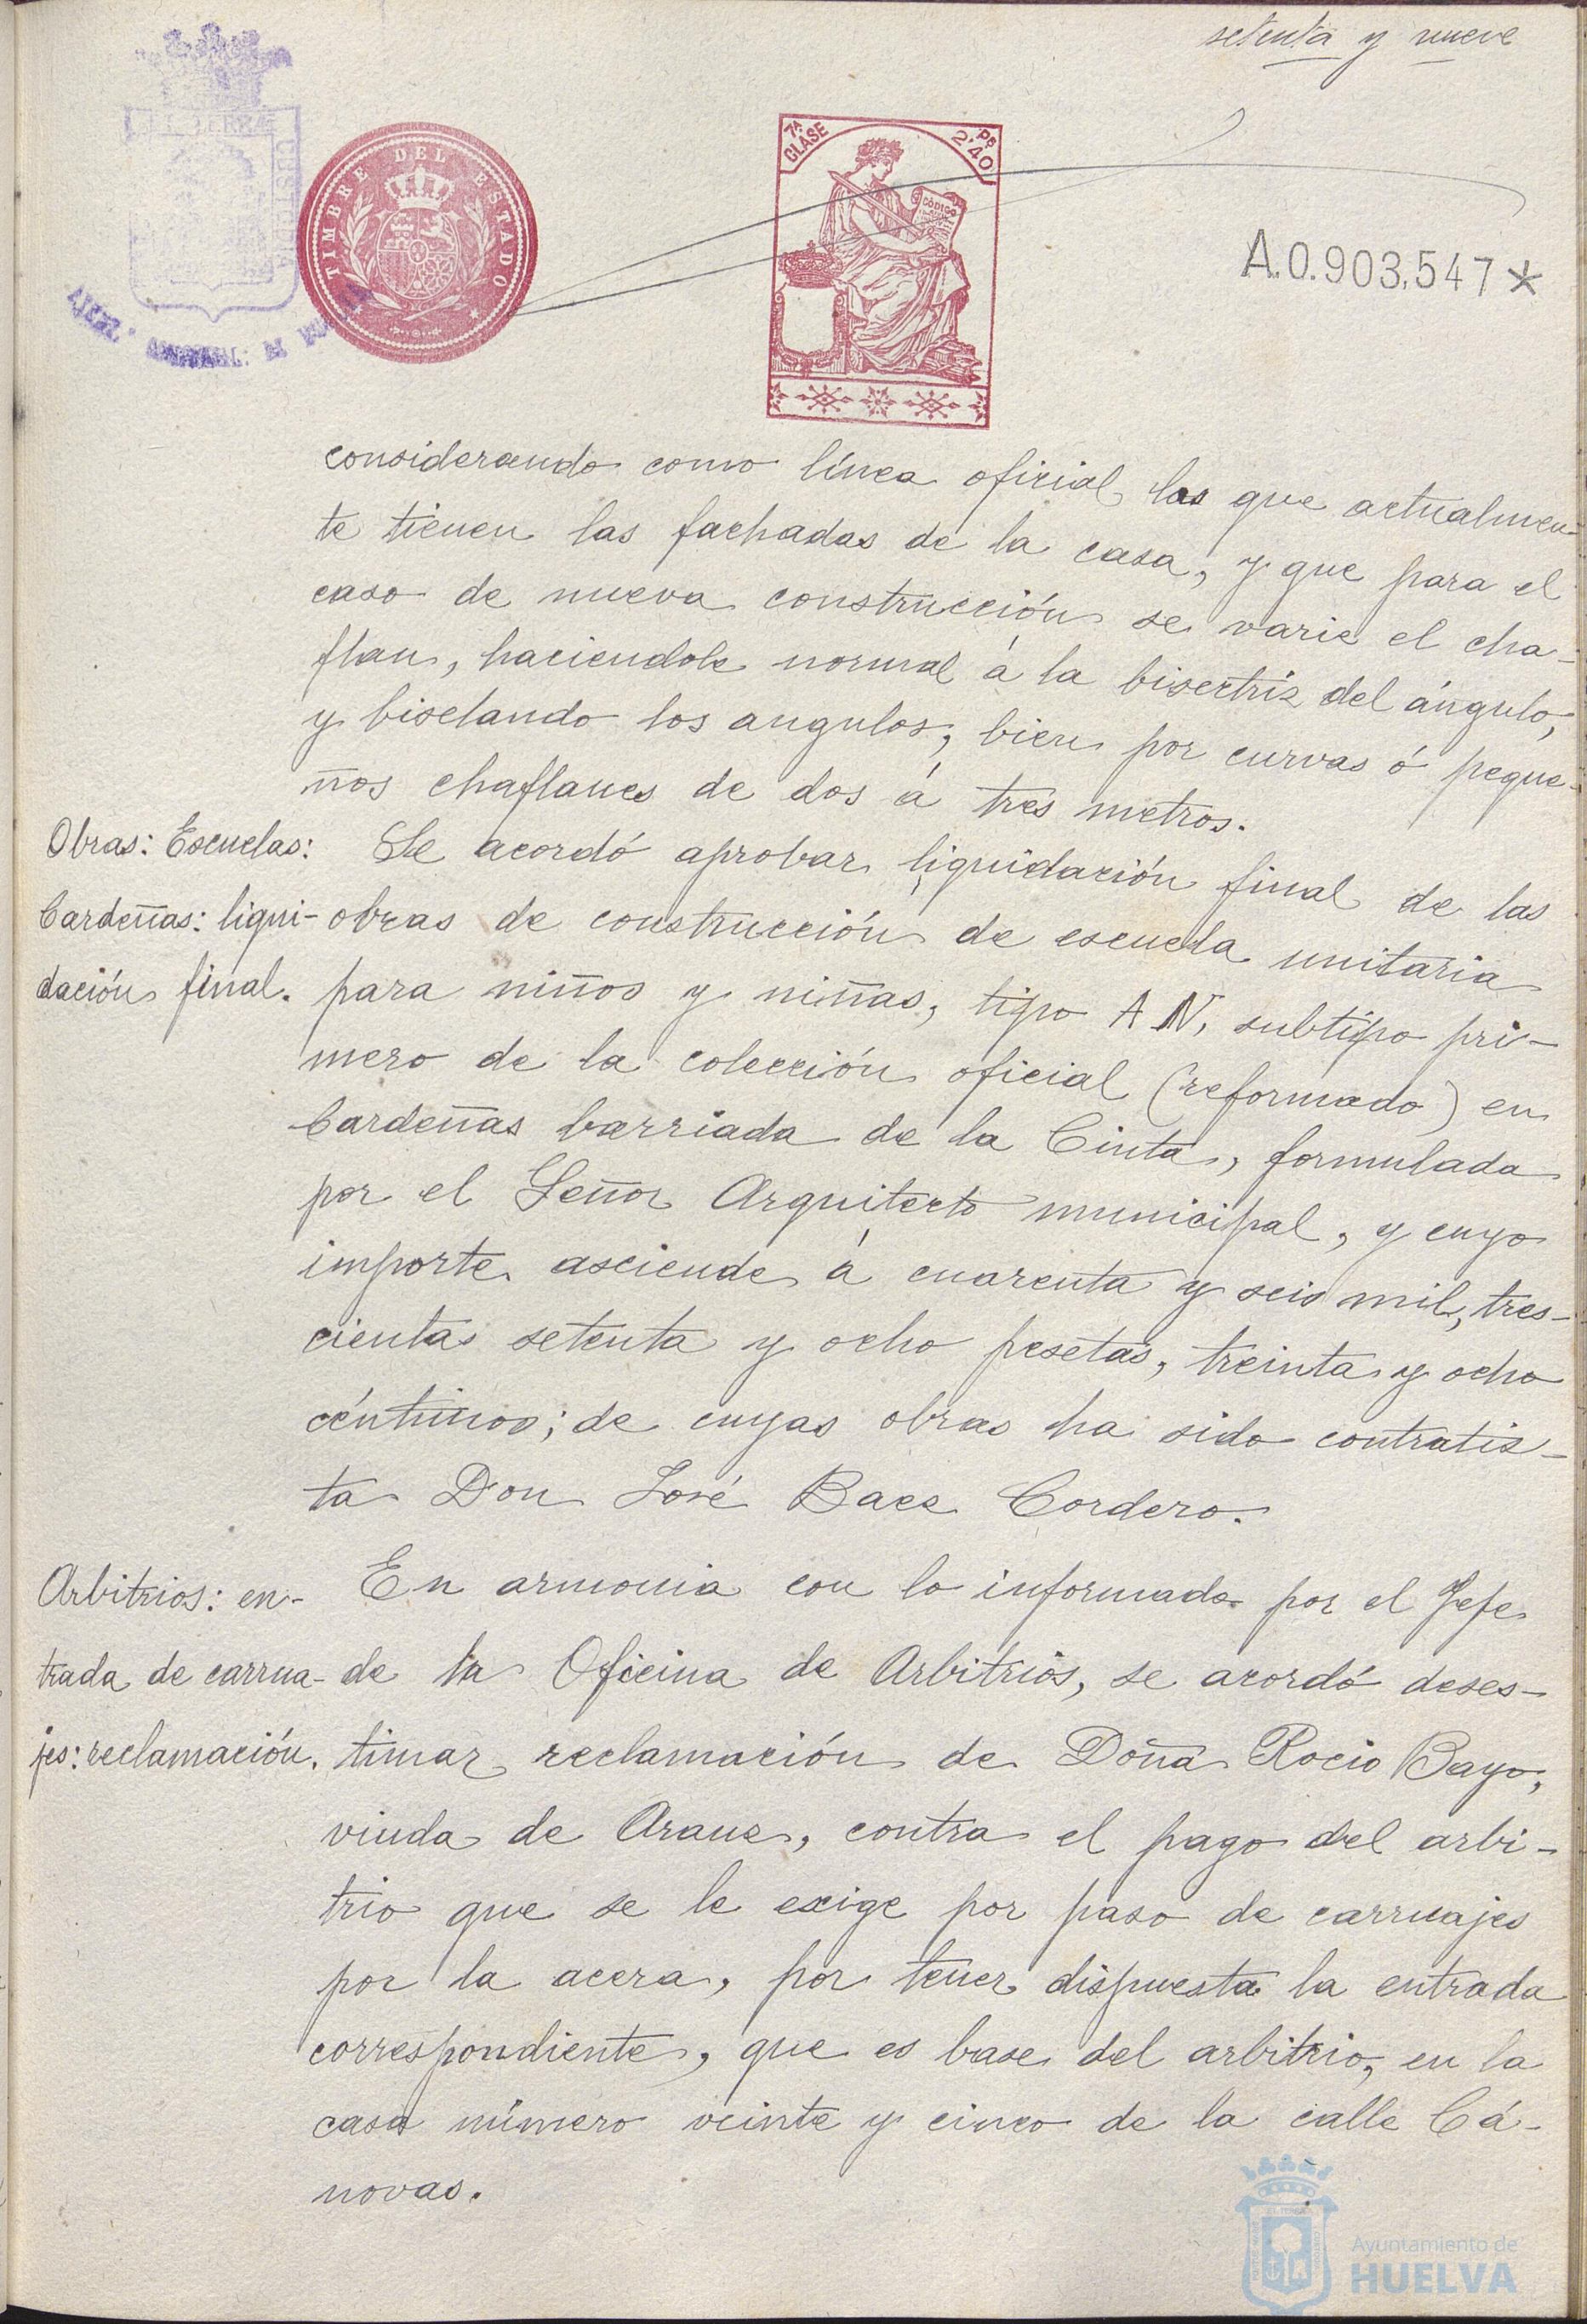 setenta y nueve
TIMBRE DEL ESTADO
7ª CLASE
2'40
CÓDIGO
A.0.903,547*
considerando como línea oficial las que actualmen-
te tienen las fachadas de la casa, y que para el
caso de nueva construcción se varie el cha-
flan, haciendole normal á la bisectriz del ángulo,
y biselando los angulos, bien por curvas ó peque-
ños chaflanes de dos á tres metros.
Obras: Escuelas: Se acordó aprobar liquidación final de las
Cardeñas: liqui- obras de construcción de escuela unitaria
dación final. para niños y niñas, tipo A N, subtipo pri-
mero de la colección oficial (reformado) en
Cardeñas barriada de la Cinta, formulada
por el Señor Arquitecto municipal, y cuyo
importe asciende á cuarenta y seis mil, tres-
cientas setenta y ocho pesetas, treinta y ocho
céntimos; de cuyas obras ha sido contratis-
ta Don José Baez Cordero.
Arbitrios: en- En armonia con lo informado por el Jefe
trada de carrua- de la Oficina de Arbitrios, se acordó deses-
jes: reclamación. timar reclamación de Doña Rocio Bayo,
viuda de Arauz, contra el pago del arbi-
trio que se le exige por paso de carruajes
por la acera, por tener dispuesta la entrada
correspondiente, que es base del arbitrio, en la
casa número veinte y cinco de la calle Cá-
novas.
Ayuntamiento de
HUELVA